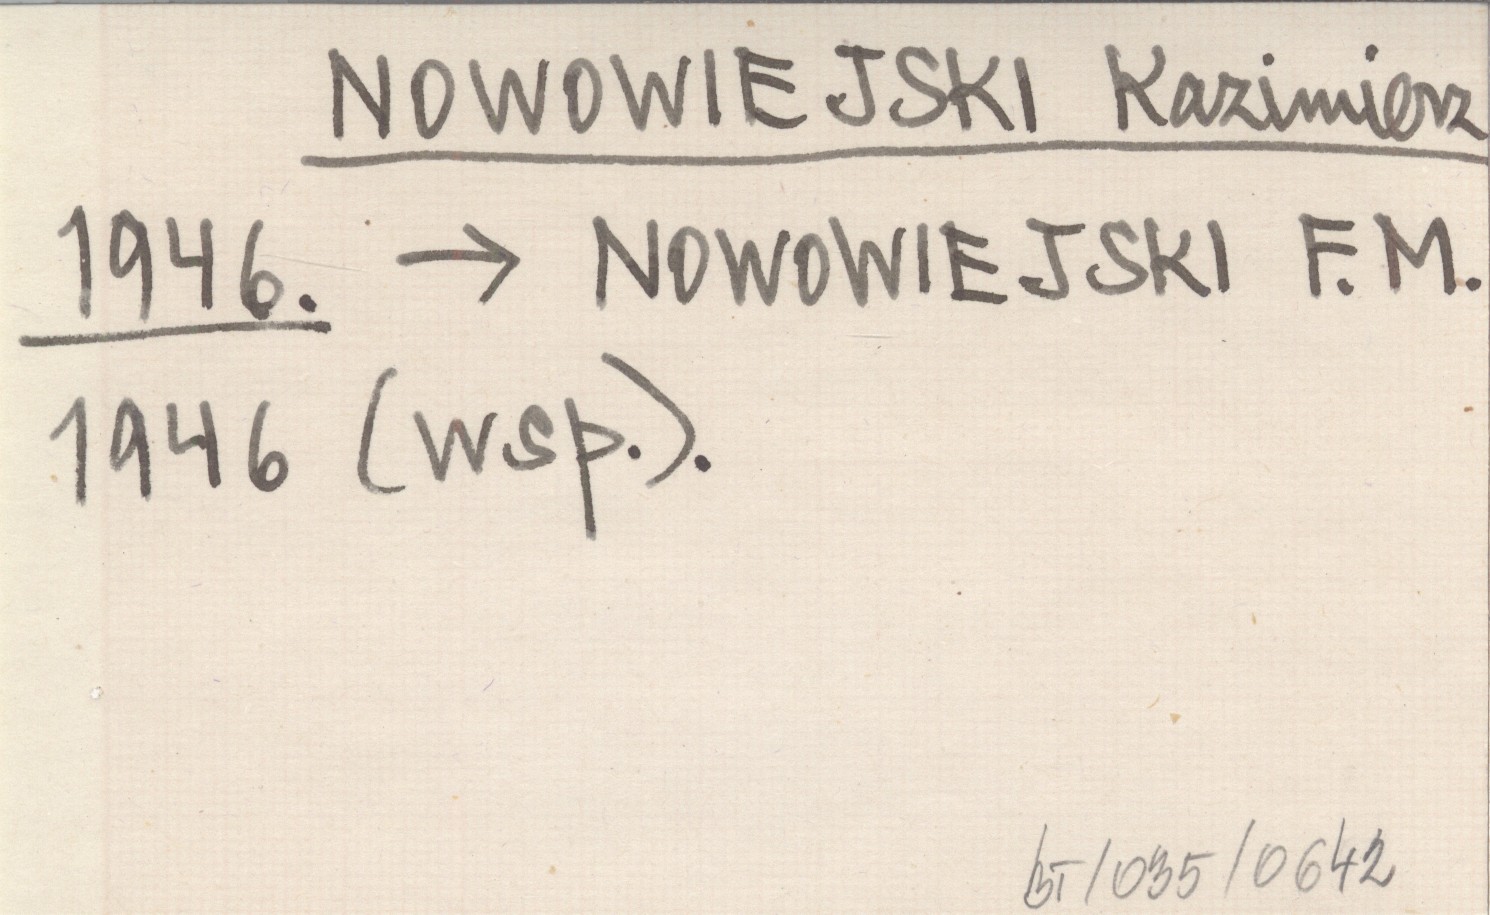 NOWOWIEJSKI Kazimierz
1946. → NOWOWIEJSKI F.M.
1946 (wsp.).
bt/035/0642